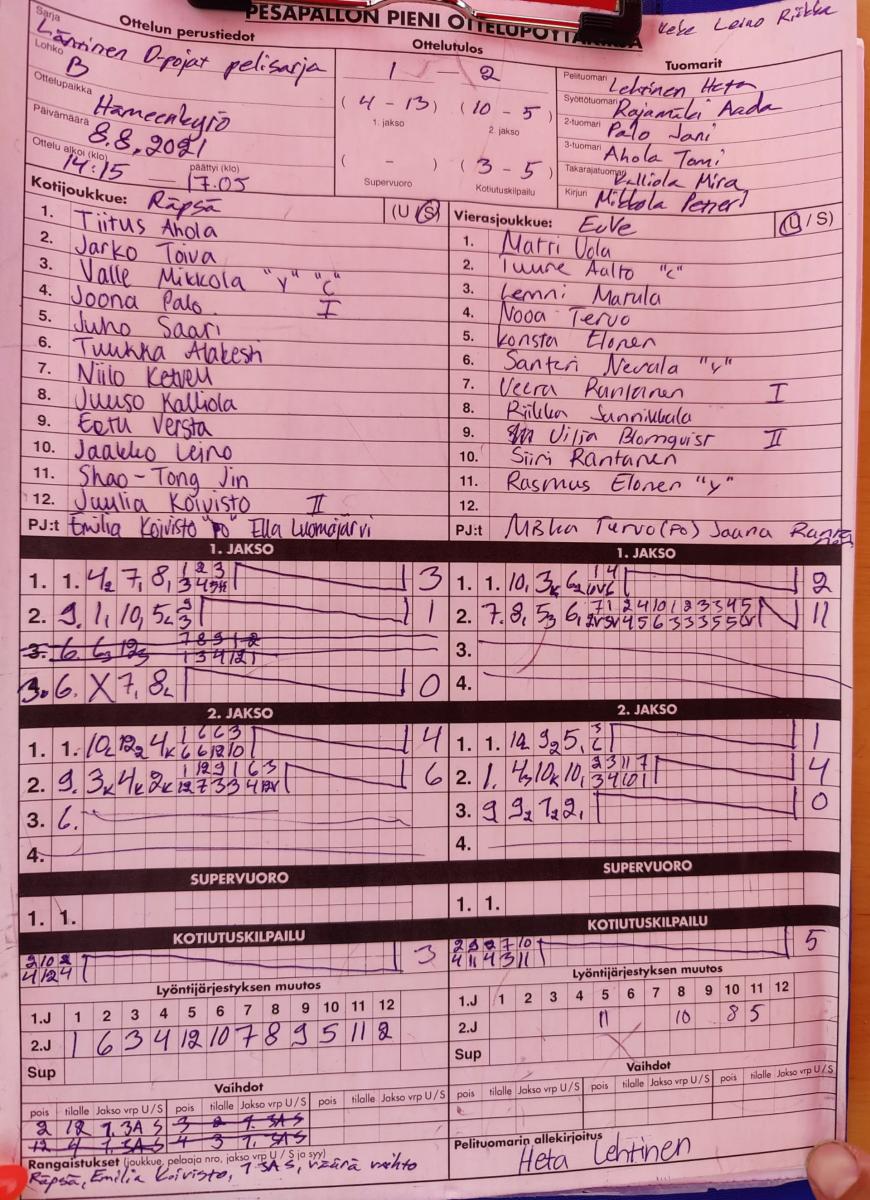 PESÄPALLON PIENI OTTELUPÖYTÄKIRJA
Leino Riikka
Ottelun perustiedot
Sarja
Läntinen D-pojat pelisarja
Lohko
B
Ottelupaikka
Hämeenkyrö
Päivämäärä
8.8.2021
Ottelu alkoi (klo) päättyi (klo)
14:15 — 17.05
Ottelutulos
1 — 2
(4 - 13) (10 - 5)
1. jakso 2. jakso
( - ) (3 - 5)
Supervuoro Kotiutuskilpailu
Tuomarit
Pelituomari Lehtinen Heta
Syöttötuomari Rajamäki Aada
2-tuomari Palo Jani
3-tuomari Ahola Tomi
Takarajatuomari Kalliola Mira
Kirjuri Mikkola Petteri
Kotijoukkue: Räpsä (U/S)
1. Tiitus Ahola
2. Jarko Toiva
3. Valle Mikkola "V" "C"
4. Joona Palo I
5. Juho Saari
6. Tuukka Alakesti
7. Niilo Ketveli
8. Juuso Kalliola
9. Eetu Versta
10. Jaakko Leino
11. Shao-Tong Jin
12. Juulia Koivisto II
PJ:t Emilia Koivisto "PO" Ella Luomajärvi
Vierasjoukkue: EuVe (U/S)
1. Matti Uola
2. Tuure Aalto "C"
3. Lenni Marula
4. Nooa Tervo
5. Konsta Elonen
6. Santeri Nevala "V"
7. Veera Rantanen I
8. Riikka Sunnikkala
9. Vilja Blomqvist II
10. Siiri Rantanen
11. Rasmus Elonen "V"
12.
PJ:t Tervo (PO) Jaana
1. JAKSO
1. 1. 4₂ 7, 8, 1 2 3 3
2. 9. 1, 10, 1
3. 6.
3. 6. X 7, 8 0
4.
1. JAKSO
1. 1. 10, 3ₖ 6₂ 1 4 2
2. 7. 8, 5₃ 6, 11
3.
4.
2. JAKSO
1. 1. 10 12₂ 4ₖ 1 6 6 3 4
6 6 12 10
2. 9. 3ₖ 4ₖ 2ₖ 1 12 9 1 6 3 6
3. 6.
4.
2. JAKSO
1. 1. 9₂ 5, 3 1
6
2. 1. 4₃ 10ₖ 10, 2 3 11 7 4
3 4 10 1
3. 9 9₂ 7₂ 2, 0
4.
SUPERVUORO
1. 1.
SUPERVUORO
1. 1.
KOTIUTUSKILPAILU
2 10 2 3
4 12 4
KOTIUTUSKILPAILU
2 9 2 7 10 5
4 11 4 3 11
Lyöntijärjestyksen muutos
1.J 1 2 3 4 5 6 7 8 9 10 11 12
2.J 1 6 3 4 12 10 7 8 9 5 11 2
Sup
Lyöntijärjestyksen muutos
1.J 1 2 3 4 5 6 7 8 9 10 11 12
2.J 11 10 8 5
Sup
Vaihdot
pois tilalle Jakso vrp U / S pois tilalle Jakso vrp U / S pois tilalle Jakso vrp U / S
2 12 1. 3A S 3 2 1. 3A S
12 4 1. 3A S 4 3 1. 3A S
Vaihdot
pois tilalle Jakso vrp U / S pois tilalle Jakso vrp U / S pois tilalle Jakso vrp U / S
Rangaistukset (joukkue, pelaaja nro, jakso vrp U / S ja syy)
Räpsä, Emilia Koivisto, 1. 3A S, väärä vaihto
Pelituomarin allekirjoitus
Heta Lehtinen